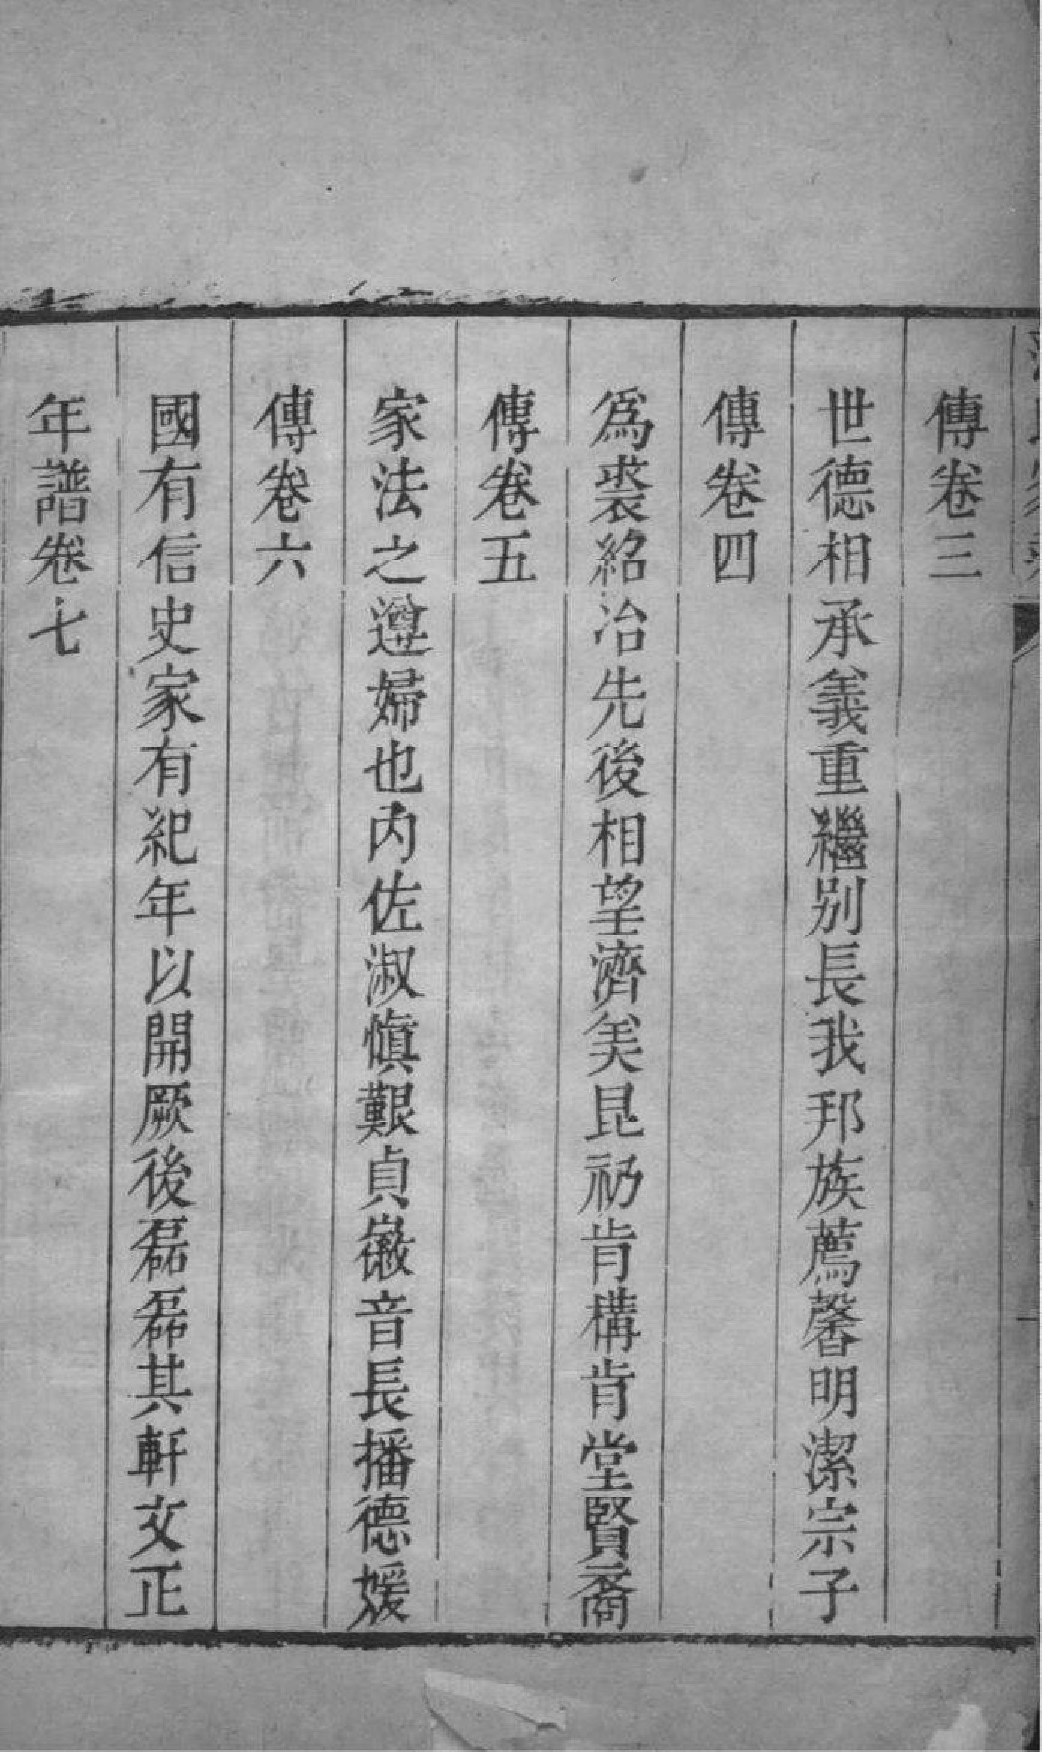 傳卷三
世德相承義重繼别長我邦族薦馨明潔宗子
傳卷四
爲裘紹冶先後相望濟美昆礽肯構肯堂賢裔
傳卷五
家法之遵婦也内佐淑慎艱貞徽音長播德媛
傳卷六
國有信史家有紀年以開厥後磊磊其軒文正
年譜卷七